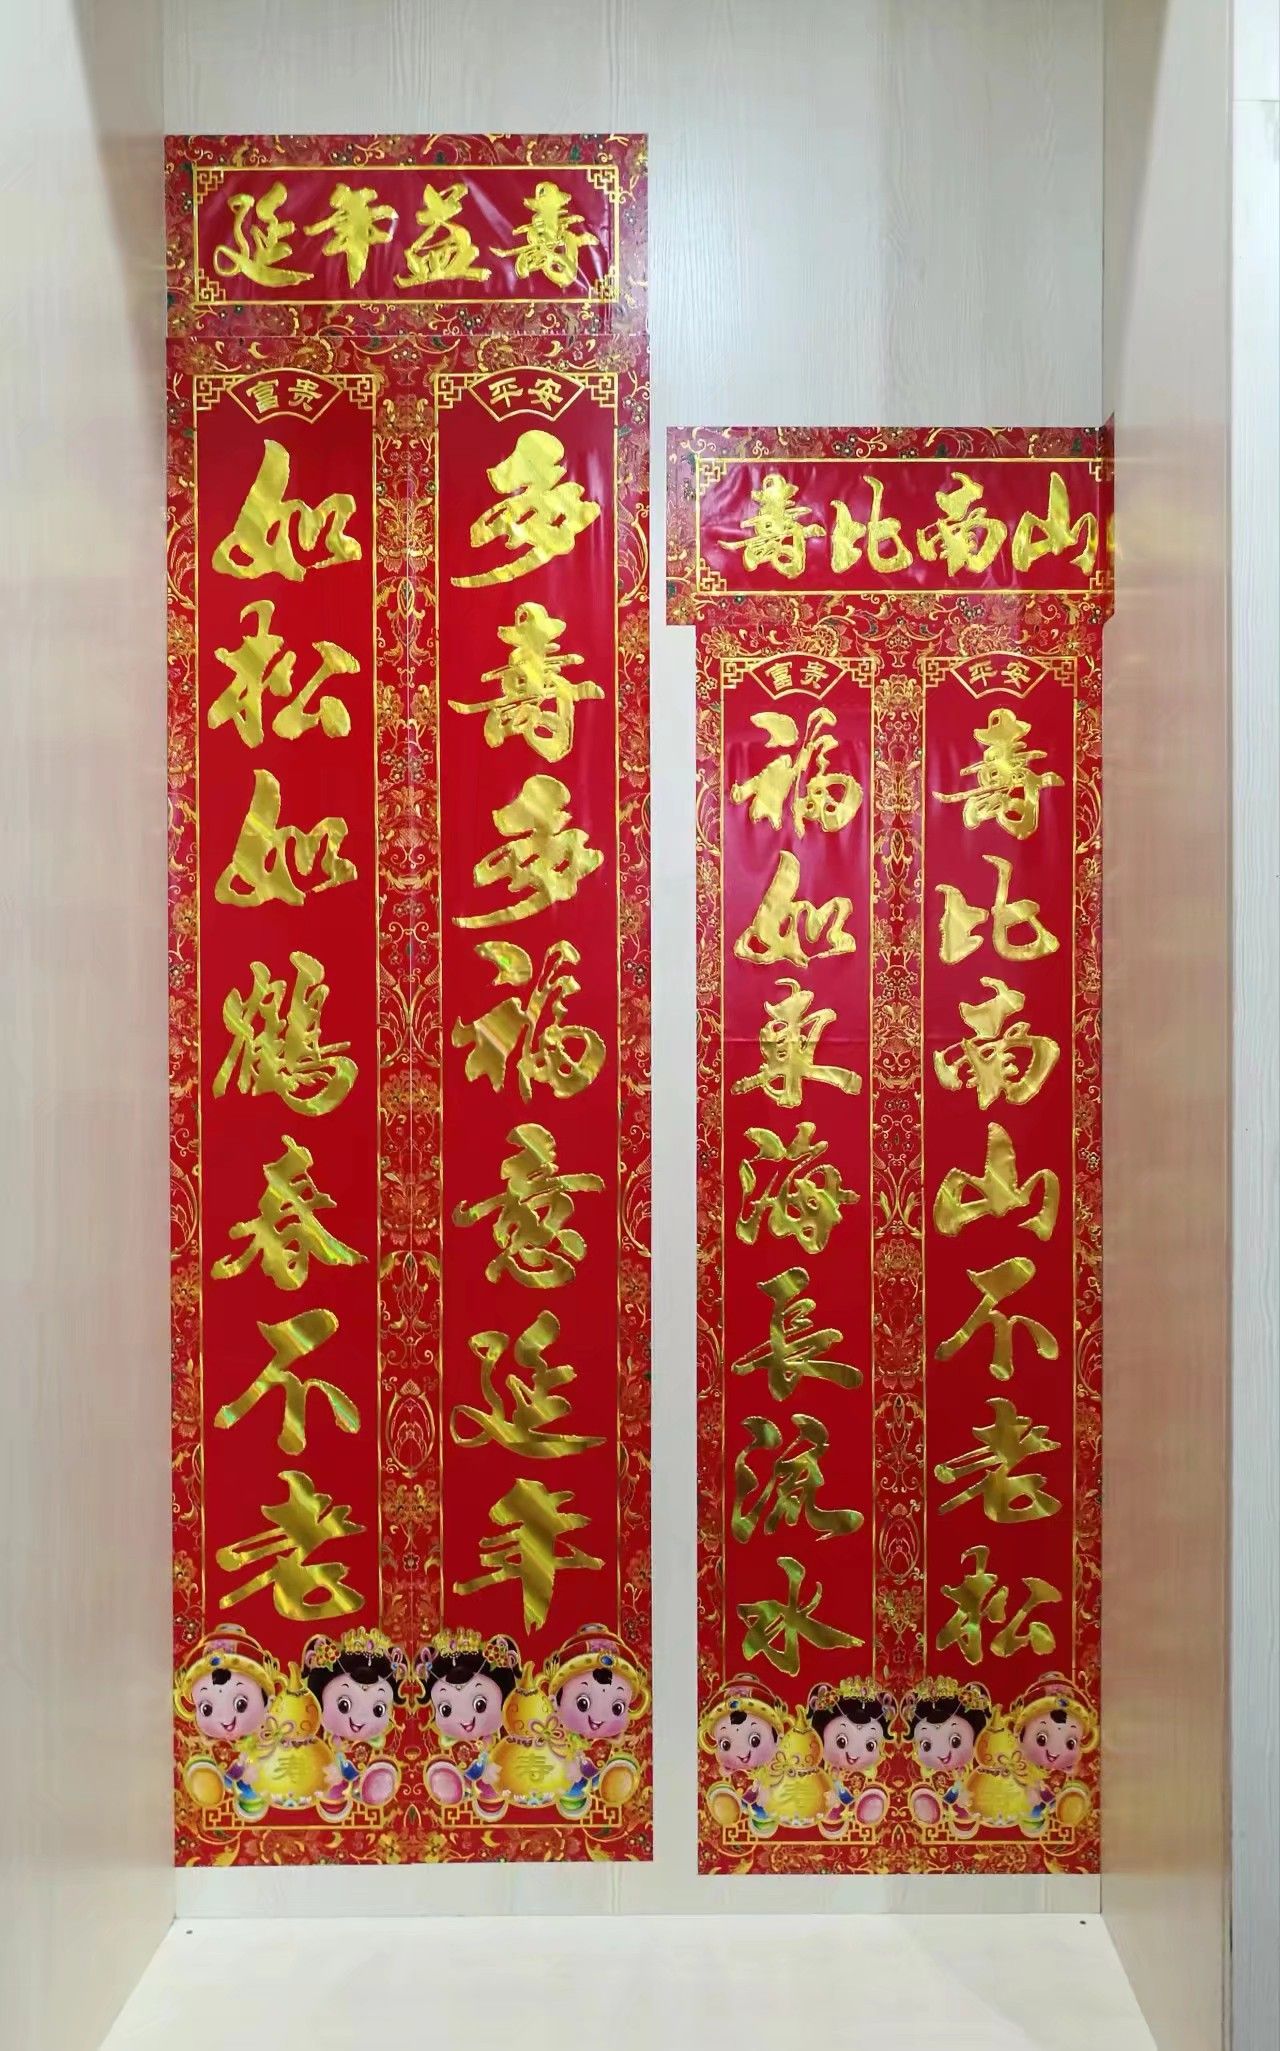 延年益壽
富贵
如松如鶴春不老
寿
平安
多壽多福意延年
寿
壽比南山
富贵
福如東海長流水
寿
平安
壽比南山不老松